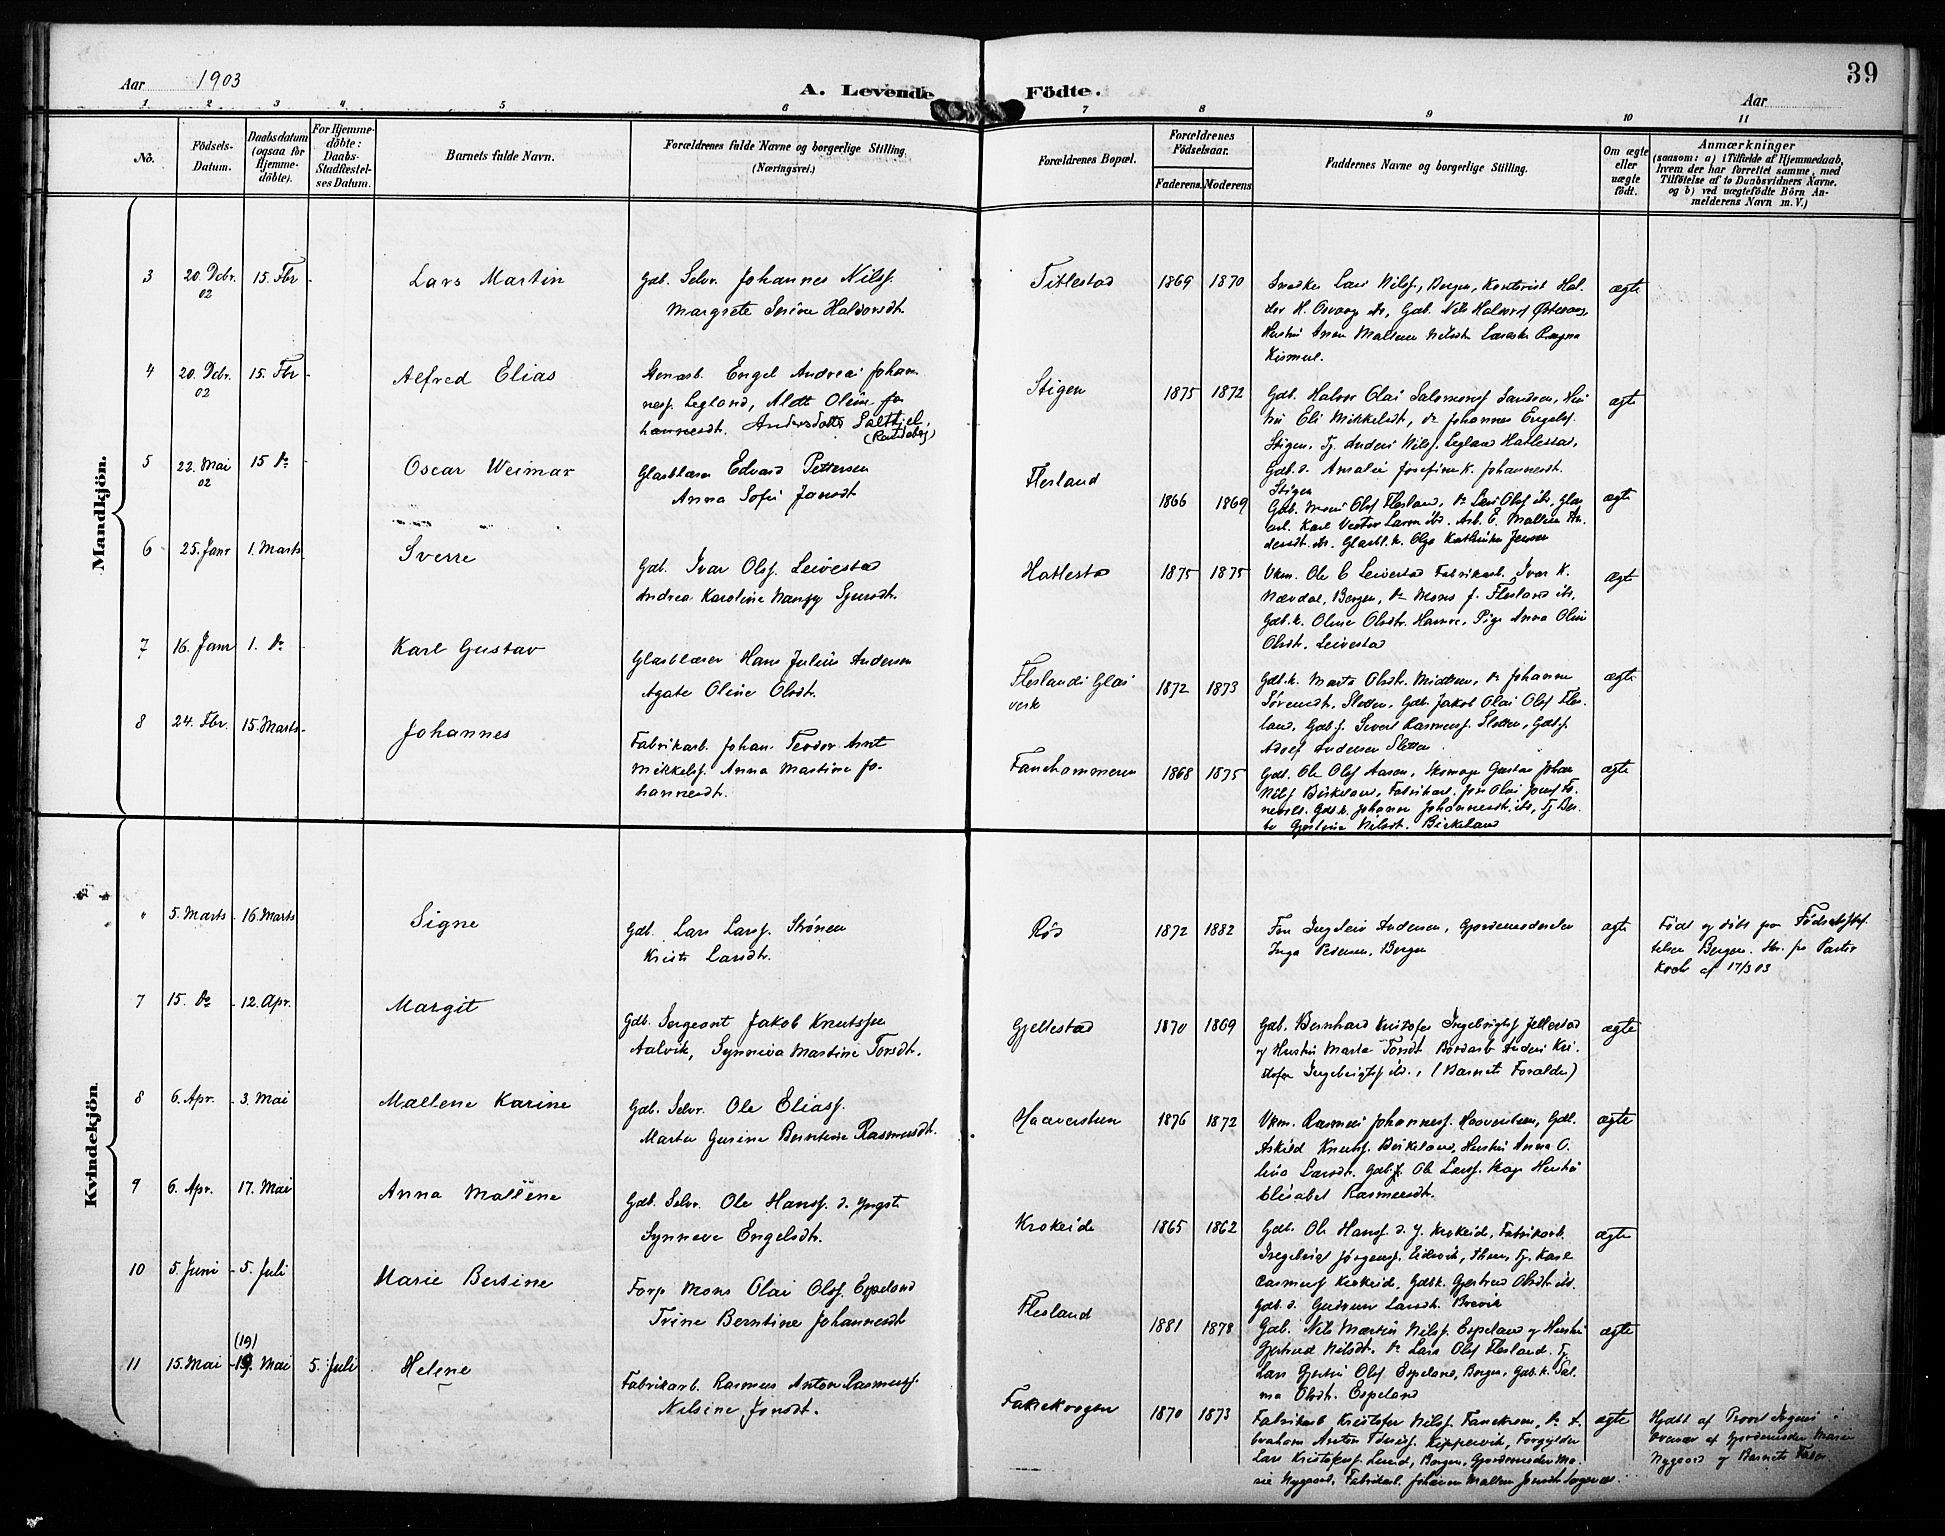 39
Aar 1903
A. Levende Födte.
Aar
1 2 3 4 5 6 7 8 9 10 11
No.
Födsels-Datum.
Daabsdatum (ogsaa for Hjemme-döbte).
For Hjemme-döbte: Daabs-Stadfæstel-ses Datum.
Barnets fulde Navn.
Forældrenes fulde Navne og borgerlige Stilling. (Næringsvei.)
Forældrenes Bopæl.
Forældrenes Födselsaar.
Faderens. Moderens.
Faddernes Navne og borgerlige Stilling.
Om ægte eller uægte födt.
Anmærkninger
(saasom: a) i Tilfælde af Hjemmedaab,
hvem der har forrettet samme, med
Tilföielse af to Daabsvidners Navne,
og b) ved uægtefödte Börn An-
melderens Navn m. V.)
Mandkjön.
3 20. Dcbr. 02 15. Fbr - Lars Martin
Gdb. Selv. Johannes Nilsf.
Margrete Serine Haldorsdt.
Titlestad 1869 1870
Lars Nilsf., Bergen, Kontorist Hal-
dor H. Gdb. Nils
Hustru Anna Mallene Nilsdt.
ægte
4 20. Dcbr. 02 15. Fbr - Alfred Elias
Stenarb. Engel Andreas Johan-
nesf. Legland, Alette Oline Jo-
hannesdt. Andersdotter Salthjel.
Stigen 1875 1872
Gdb. Halvor Olai Salomonsf. Sandven, Hus-
tru Eli Mikkelsdt, Do Johannes Engelsf.
Stigen, Tj. Anders Nilsf. Legland Hatlestad,
Gdb. d. Amalie Josefine K. Johannesdt.
Stigen
ægte
5 22. Mai 02 15 Do - Oscar Weimar
Glasblæser Edvard Pettersen
Anna Sofie Jonsdt
Flesland 1866 1869
Gdb. Mons Olsf Flesland, Do Lars Olsf ibd, Glas-
arb. Karl Victor Larm ibd. Arb. E. Mallene An-
dersdt. ibd. Glasbl. k. Olga Kathrine Jensen
ægte
6 25. Janr 1. Marts - Sverre
Gdb. Ivar Olsf. Leirestad
Andrea Karoline Nancy Sjursdt.
Hatlestad 1875 1875
Ukm. Ole C Leirestad Fabrikarb. Ivar K.
Nævdal, Bergen, Do Mons J. Flesland ibd.
Gdb. k. Oline Olsdtr. Hamre, Pige Anna Oline
Olsdt. Leirestad
ægte
7 16. Janr 1. Do - Karl Gustav
Glasblæser Hans Julius Andersen
Agate Oline Olsdt.
Fleslands Glas-
verk 1872 1873
Gdb. k. Marta Olsdt. Midtun, Do Johanne
Sörensdt, Sletten, Gdb. Jakob Olai Olsf Fles-
land, Gdb. f. Sivert Rasmusf. Sletten, Gdb. f.
Adolf Andersen Sletten.
ægte
8 24. Fbr. 15. Marts - Johannes
Fabrikarb. Johan Teodor Arnt
Mikkelsf. Anna Martine Jo-
hannesdt.
Fanehammeren 1868 1875
Gdb. Ole Olsf Aasen, Skomager Gustav Johan
Nilsf Birkeland, Fabrikarb. Jon Olai
Gdb. k. Johanne Johannesdt. ibd, Tj.
Nilsdt. Birkeland
ægte
Kvindekjön.
" 5. Marts - 16. Marts Signe
Gdb. Lars Larsf. Strönen
Kristi Larsdt.
Röd 1872 1882
Andersen, Gjordemoder
Inga Pedersen, Bergen
ægte
Födt og döbt paa Födselsstif-
telsen Bergen. Skr. fra Pastor
Koch af 17/3 03
7 15. Do - 12. Apr. Margit
Gdb. Sergeant Jakob Knutsen
Aalvik, Synneva Martine Torsdt.
Gjellestad 1870 1869
Gdb. Bernhard Kristofer Ingebrigtsf Jellestad
og Hustru Marta Torsdt Anders Kri-
stofer Ingebrigtsf ibd., (Barnets Forældre)
ægte
8 6. Apr. - 3. Mai Mallene Karine
Gdb. Selv. Ole Eliasf.
Marta Gurine Berntine Rasmusdt.
Haaversteen 1876 1872
Ukm. Rasmus Johannesf. Haaversteen, Gdb.
Askild Knutsf. Birkeland, Hustru Anna O-
lina Larsdt. Gdb. f. Ole Larsf. Skage Hustru
Elisabet Rasmusdt.
ægte
9 6. Apr. 17. Mai Anna Mallene
Gdb. Selv. Ole Hansf. d. yngste
Synneve Engelsdt.
Krokeide 1865 1862
Gdb. Ole Hansf. d. y. Krokeide, Fabrikarb.
Ingebrigt Jörgensf. Eidsvik, Tj. Karl
Rasmusf Krokeide, Gdb. k. Gjertrud Olsdt. ibd.
Gdb. d. Gudrun Larsdt. Brevik
ægte
10 5. Juni - 5. Juli Marie Bertine
Forp. Mons Olai Olsf. Espeland
Trine Berntine Johannesdt
Flesland 1881 1878
Gdb. Nils Martin Nilsf. Espeland og Hustru
Gjertrud Nilsdt. Do Lars Olsf Flesland. Tj.
Lars Olsf. Espeland, Bergen, Gdb. k. Sal-
ma Olsdt. Espeland
ægte
11 15. Mai - 19. Mai (19) 5. Juli Helene
Fabrikarb. Rasmus Anton Rasmusf.
Nilsine Jonsdt.
1870 1873
Fabrikarb Kristofer Nilsf. Do A-
braham Anton Kippervik, Forgylder
Lars Kristofersf. Lund, Bergen, Gjordemoder Ma-
rie Nygaard, Fabrikarb. Johanne Mallene Jonsdt
ægte
Hjdbt af Provst i
Nærvær af Gjordemoder Marie
Nygaard og Barnets Fader